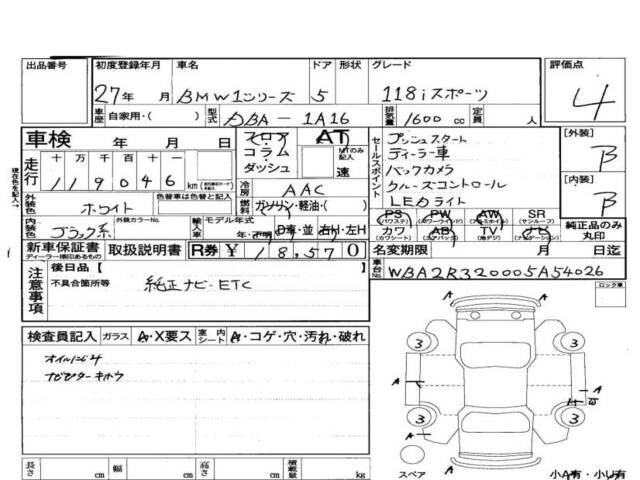 出品番号 初度登録年月 車名 ドア 形状 グレード 評価点
27年 月 BMW1シリーズ 5 118iスポーツ 4
車歴 自家用・( ) 型式 DBA-1A16 排気量 1600 cc 定員 人
車検 年 月 日 フロア コラム ダッシュ AT MTのみ記入 速
セールスポイント
プッシュスタート
ディーラー車
バックカメラ
クルーズコントロール
LEDライト
[外装] B
[内装] B
現在色を記入→
走行 十 万 千 百 十 一
119046 km
冷房 AAC
外装色 ホワイト 色替車は色替と記入 燃料 ガソリン・軽油・( )
内装色 ブラック系 外装カラーNo. 輸入車 モデル年式 年・ D車・並 右H・左H
PS (パワステ) PW (パワーウィンド) AW (アルミホイル) SR (サンルーフ)
カワ (カワシート) AB (エアバッグ) TV (地デジ) ナビ (ナビゲーション)
純正品のみ丸印
新車保証書 ディーラー捺印あるもの 取扱説明書 R券 ¥ 18,570 名変期限 月 日迄
車台No. WBA2R320005A54026
注意事項 後日品 [ ]
不具合箇所等 純正ナビ・ETC
ロック車
検査員記入 ガラス A・X要ス 室内シート A・コゲ・穴・汚れ・破れ
オイルにじみ
3 3
A
A
A
3 3
A
A
スペア
小A有・小U有
長さ cm 幅 cm 高さ cm 積載量 kg